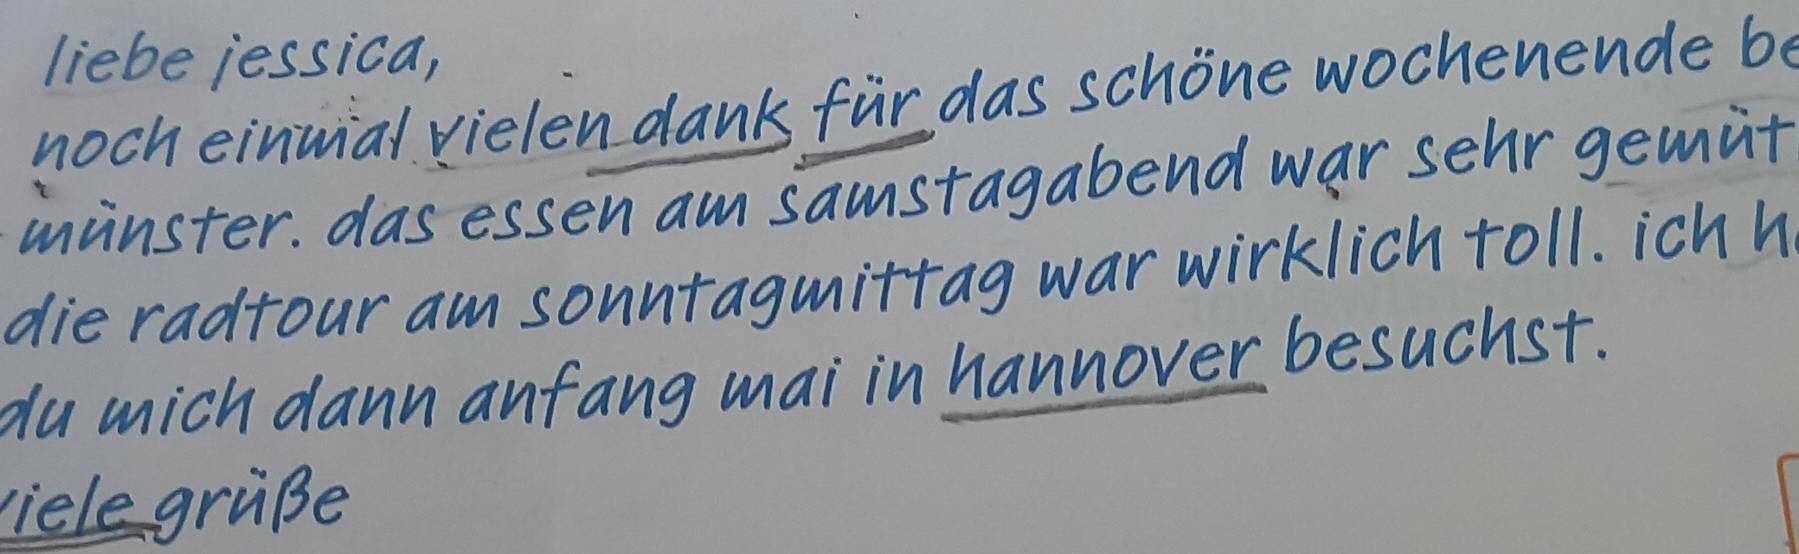 liebe jessica,
noch einmal vielen dank für das schöne wochenende be
münster. das essen am samstagabend war sehr gemüt
die radtour am sonntagmittag war wirklich toll. ich h
du mich dann anfang mai in hannover besuchst.
viele grüße